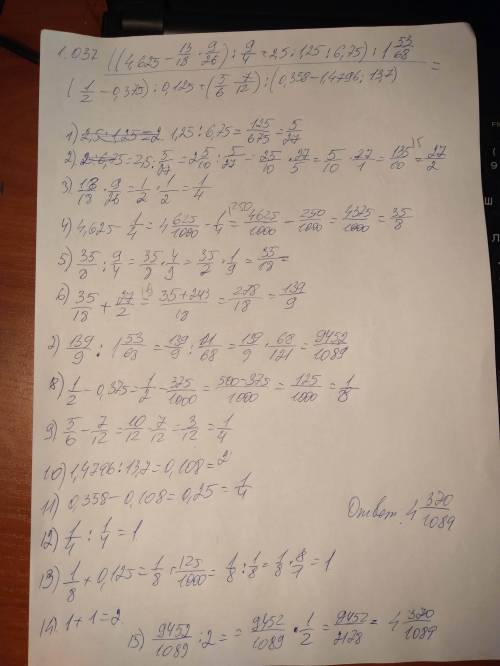 1.037 ((4,625 - 13/18 · 9/26) : 9/4 + 2,5 : 1,25 : 6,75) : 1 53/68
(1/2 - 0,375) : 0,125 + (5/6 - 7/12) : (0,358 - 1,4796 : 13,7) =
1) 2,5 : 1,25 = 2 1,25 : 6,75 = 125/675 = 5/27
2) 2 : 6,75 = 2,5 : 5/27 = 2 5/10 : 5/27 = 25/10 · 27/5 = 5/10 · 27/1 = 135/10 = 27/2
3) 13/18 · 9/26 = 1/2 · 1/2 = 1/4
4) 4,625 - 1/4 = 4 625/1000 - 1/4 = 4625/1000 - 250/1000 = 4375/1000 = 35/8
5) 35/8 : 9/4 = 35/8 · 4/9 = 35/2 · 1/9 = 35/18 =
6) 35/18 + 27/2 = 35+243/18 = 278/18 = 139/9
7) 139/9 : 1 53/68 = 139/9 : 121/68 = 139/9 · 68/121 = 9452/1089
8) 1/2 - 0,375 = 1/2 - 375/1000 = 500-375/1000 = 125/1000 = 1/8
9) 5/6 - 7/12 = 10/12 - 7/12 = 3/12 = 1/4
10) 1,4796 : 13,7 = 0,108 =
11) 0,358 - 0,108 = 0,25 = 1/4
12) 1/4 : 1/4 = 1
Ответ: 4 370/1089
13) 1/8 + 0,125 = 1/8 : 125/1000 = 1/8 : 1/8 = 1/8 · 8/1 = 1
14) 1 + 1 = 2
15) 9452/1089 : 2 = = 9452/1089 · 1/2 = 9452/2178 = 4 370/1089